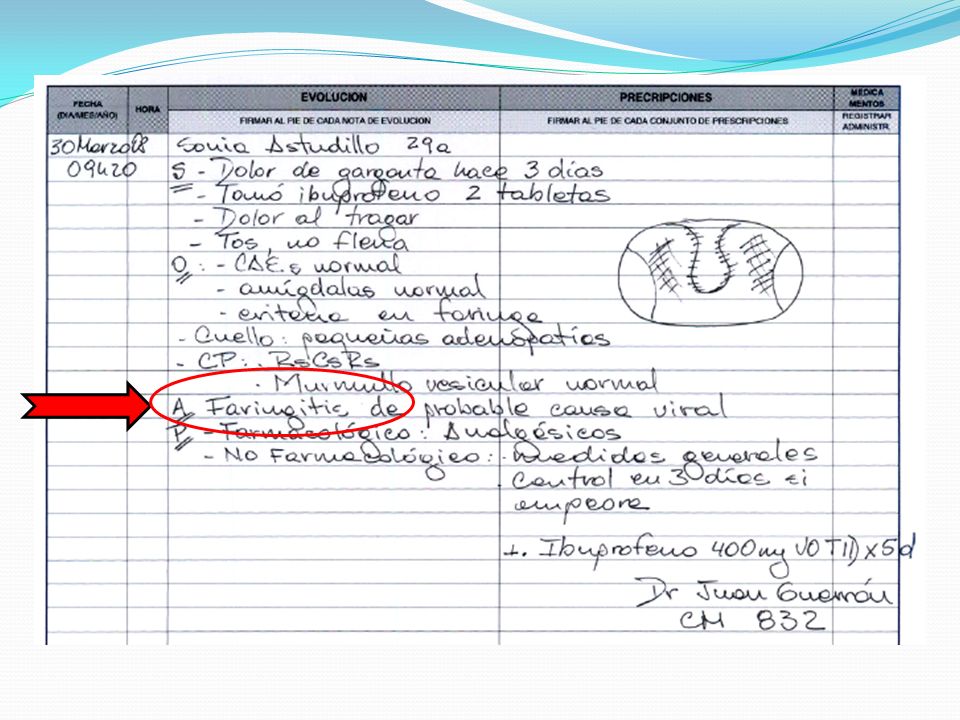 FECHA (DIA/MES/AÑO)
HORA
EVOLUCION
FIRMAR AL PIE DE CADA NOTA DE EVOLUCION
PRECRIPCIONES
FIRMAR AL PIE DE CADA CONJUNTO DE PRESCRIPCIONES
MEDICA MENTOS
REGISTRAR ADMINISTR.
30 Marzo 08 Sonia Astudillo 29a
09h20 S - Dolor de garganta hace 3 días
- Tomó ibuprofeno 2 tabletas
- Dolor al tragar
- Tos, no flema
O: - CAEs normal
- amígdalas normal
- eritema en faringe
- Cuello: pequeñas adenopatías
- CP: . RsCsRs
. Murmullo vesicular normal
A Faringitis de probable causa viral
P - Farmacológico: Analgésicos
- No Farmacológico: . medidas generales
. Control en 3 días si
empeora
1. Ibuprofeno 400mg VO TID x 5d
Dr Juan
CM 832